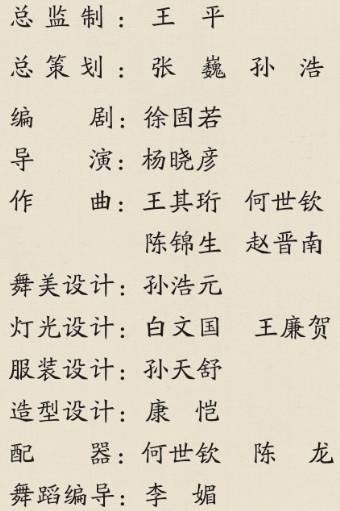 总监制：王 平
总策划：张 巍 孙 浩
编 剧：徐固若
导 演：杨晓彦
作 曲：王其珩 何世钦
陈锦生 赵晋南
舞美设计：孙浩元
灯光设计：白文国 王廉贺
服装设计：孙天舒
造型设计：康 恺
配 器：何世钦 陈 龙
舞蹈编导：李 媚